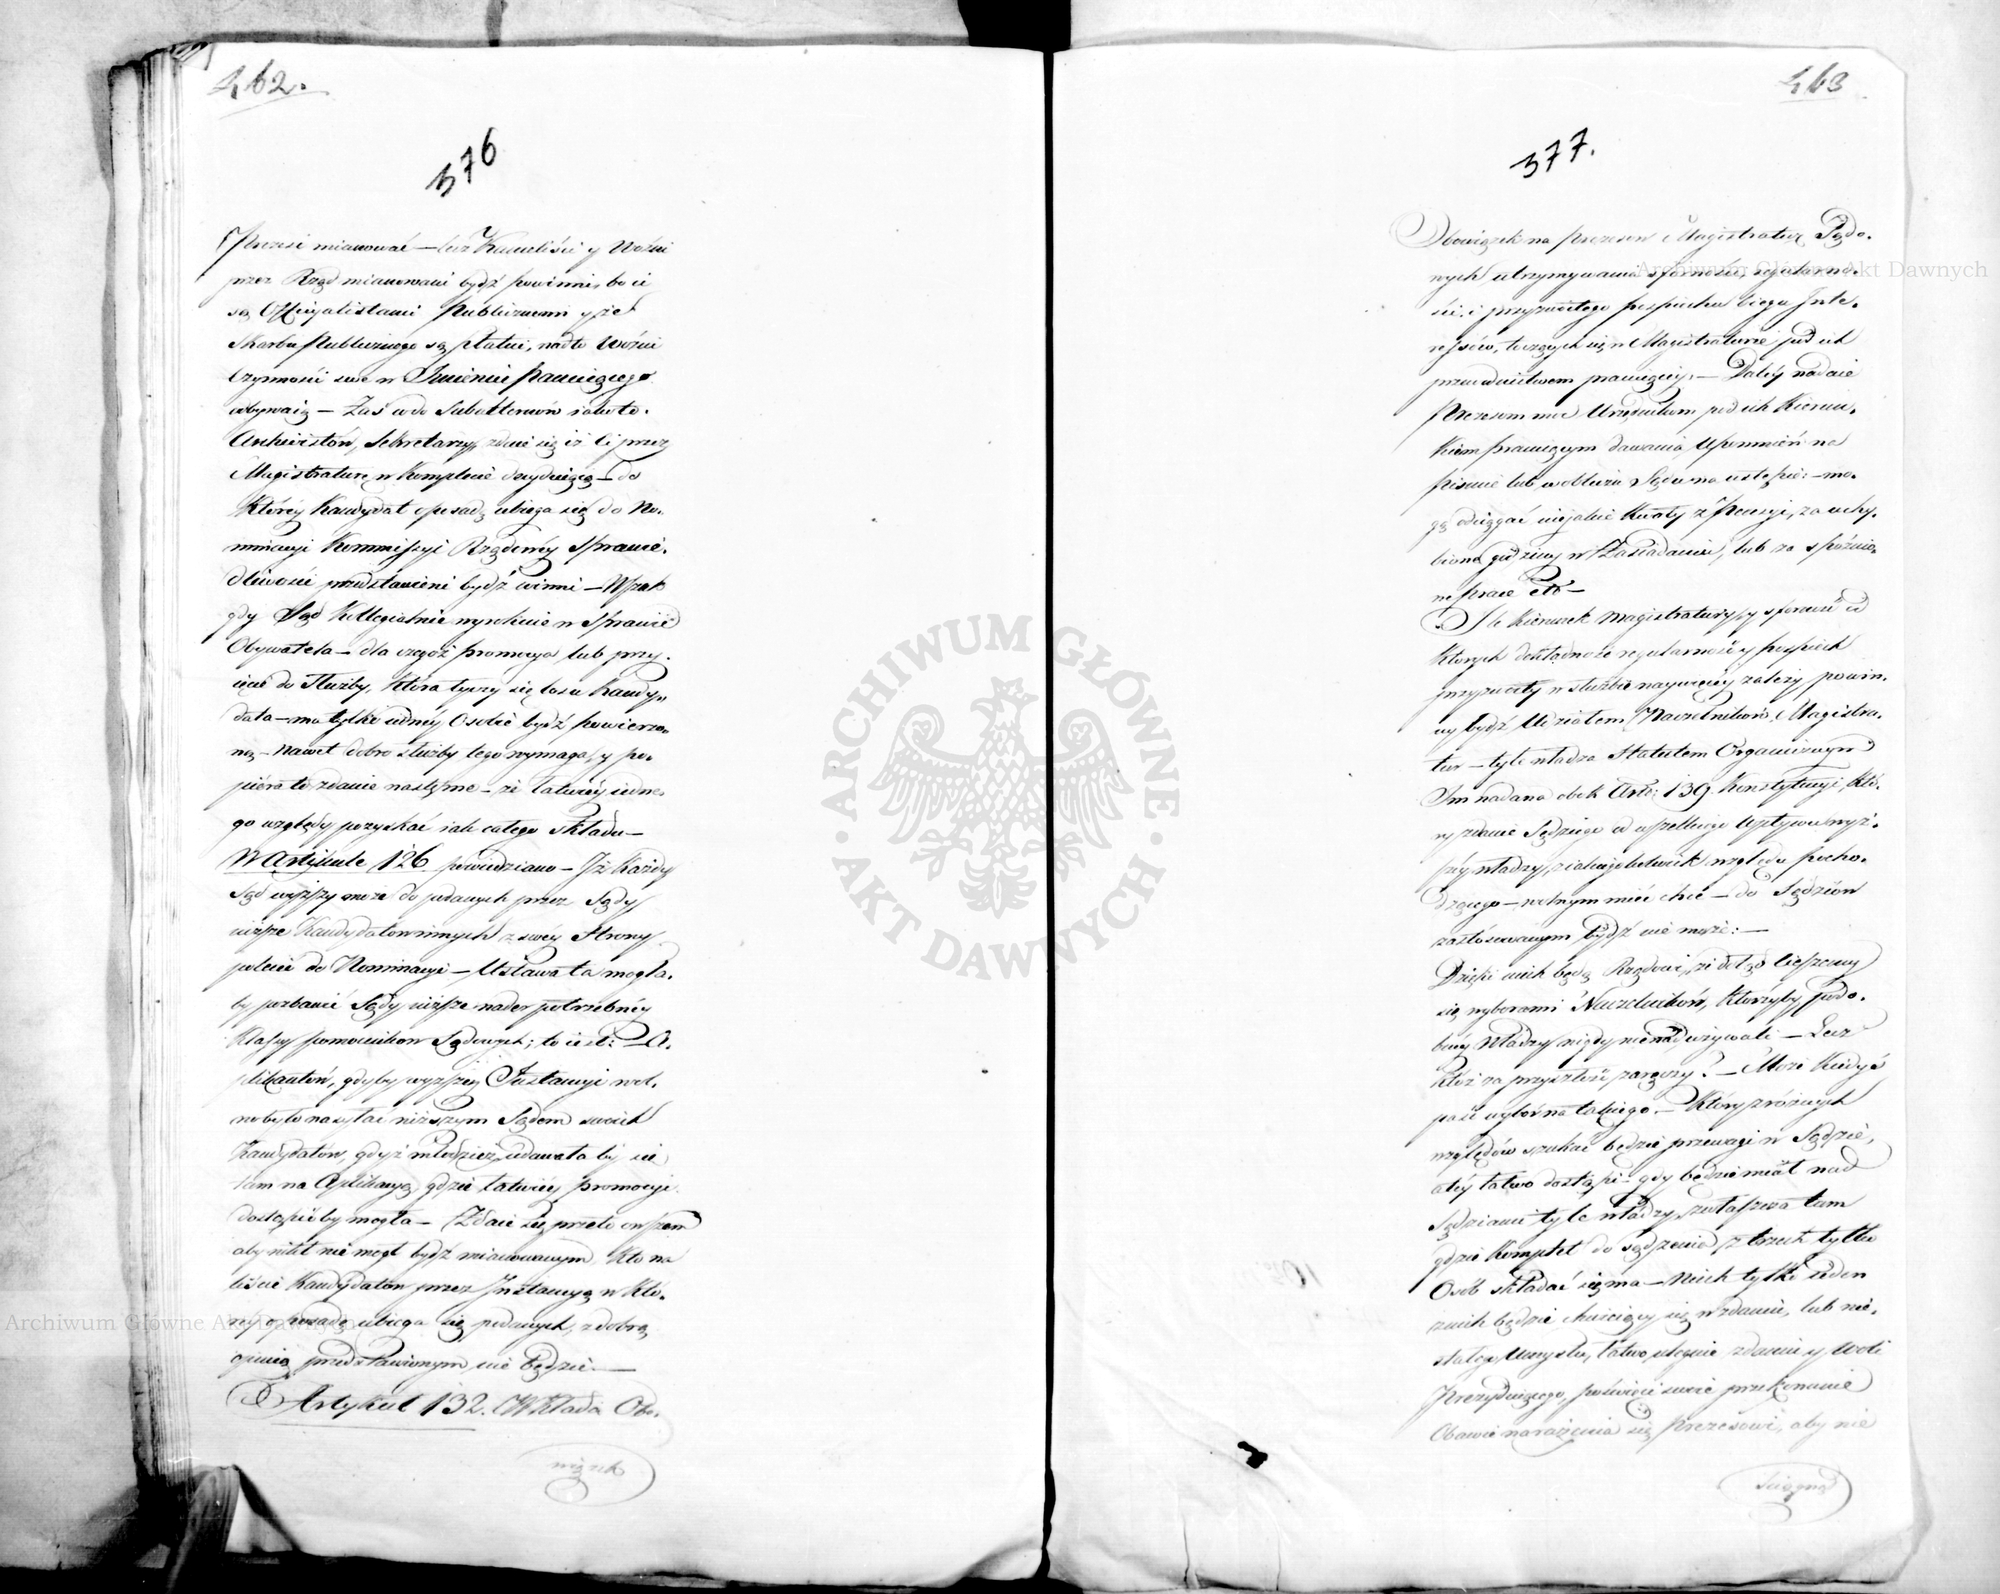 462.
376
Prezesi mianować — lecz Kancelliści y Woźni
przez Rząd mianowani bydź powinni, bo ci
są Officyalistami Publicznemi y ze
Skarbu Publicznego są płatni, nadto Woźni
czynności swe w Imieniu Panuiącego
odbywaią — Zaś co do Subalternów iako to.
Archiwistów, Sekretarzy, zdaie się iż ci przez
Magistraturę w komplecie decyduiącą — do
którey Kandydat o posadę ubiega się do No-
minacyi Kommissyi Rządowey Sprawie-
dliwości przedstawieni bydź winni — Wszak
gdy Sąd Kollegialnie wyrokuie w Sprawie
Obywatela — dla czegoż promocya lub przy-
ięcie do Służby, która tyczy się losu Kandy-
data — ma tylko iedney Osobie bydź powierzo-
ną — nawet dobro służby tego wymaga, y po-
piera to zdanie następne — że łatwiey iedne-
go względy pozyskać iak całego składu —
W Artykule 126 powiedziano — Iż każdy
Sąd wyższy może do podanych przez Sądy
niższe Kandydatow innych z swéy Strony
polecić do Nominacyi — Ustawa ta mogła-
by pozbawić Sądy niższe nader potrzebney
klassy pomocnikow Sądowych; to iest: A-
plikantów, gdyby wyższey Instancyi wol-
no było nasyłać niższym Sądom swoich
Kandydatów, gdyż młodzież udawała by się
tam na Aplikacyą, gdzie łatwiey promocyi
dostąpić by mogła — Zdaie się przeto owszem
aby nikt nie mogł bydź mianowanym kto na
liście Kandydatów przez Instancyą w któ-
rey o posadę ubiega się podanych, z dobrą
opinią przedstawionym nie będzie. —
Artykuł 132. Wkłada Obo-
463
377.
Obowiązek na Prezesow Magistratur Sądo-
wych utrzymywania sforności, regularno-
ści i przyzwoitego pospiechu biegu Inte-
ressów, toczących się w Magistraturze pod ich
przewodnictwem pracuiącey. — Daléy nadaie
Prezesom moc Urzędnikom pod ich kierun-
kiem pracuiącym dawania upomnień na
pismie lub w obliczu Sądu na ustępie: — mo-
gą odciągać iakie kwoty z Pensyi, za uchy-
bione godziny w Zasiadaniu, lub za spóźnio-
ne prace etc —
Ile kierunek Magistratury y sforność od
ktorych dokładność regularność y pospiech
przyzwoity w służbie naywięcey zależy powin-
ny bydź Udziałem Naczelników Magistra-
tur — tyle władza Statutem Organicznym
Im nadana obok Art: 139. Konstytucyi, któ-
ry zdanie Sędziego od wszelkiego wpływu wyż-
széy władzy, z iakiegokolwiek względu pocho-
dzącego — wolnym mieć chce — do Sędziów
zastosowanym bydź nie może: —
Dzięki niech będą Rządowi, że dotąd cieszemy
się wyborami Naczelników, którzyby podo-
bney Władzy nigdy nie nadużywali — Lecz
któż za przyszłość zaręczy? — Może kiedyś
paść wybór na takiego — Który z różnych
względów szukać będzie przewagi w Sądzie,
a tey łatwo dostąpi — gdy będzie miał nad
Sędziami tyle władzy, zwłaszcza tam
gdzie komplet do sądzenia z trzech tylko
Osób składać się ma — niech tylko ieden
z nich będzie chwieiący się w zdaniu, lub nie-
stałego Umysłu, łatwo ulegnie zdaniu y woli
Prezyduiącego, poświęci swoie przekonanie
Obawie narażenia się Prezesowi, aby nie
ściągnął
Archiwum Główne Akt Dawnych
ARCHIWUM GŁÓWNE · AKT DAWNYCH ·
Archiwum Główne Akt Dawnych